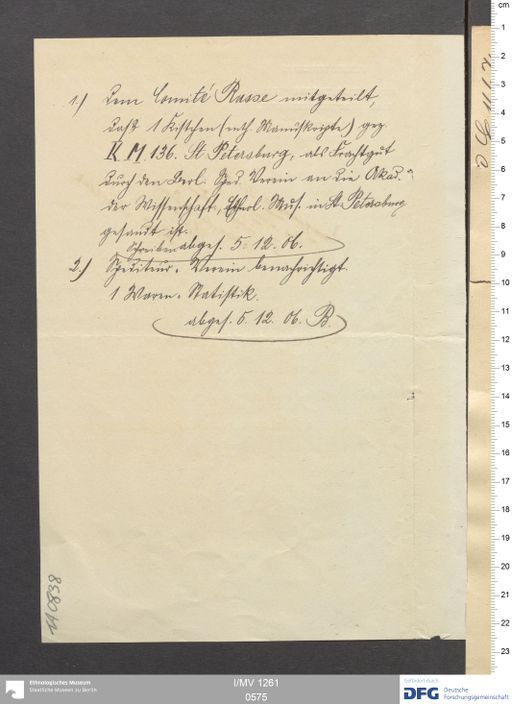 1.) dem Comité Russe mitgeteilt,
daß 1 Kistchen (enth. Manuskripte) gez.
K. M. 136. St Petersburg, als Frachtgut
durch den Berl. Sped. Verein an die Akad.
der Wissenschaft, Ethnol. Mus. in St. Petersburg
gesandt ist.
Schreiben abges. 5. 12. 06.
2.) Spediteur-Verein benachrichtigt.
1 Waren-Statistik.
abges. 5. 12. 06. B.
Ethnologisches Museum
Staatliche Museen zu Berlin
I/MV 1261
0575
Gefördert durch
DFG Deutsche
Forschungsgemeinschaft
cm
1
2
3
4
5
6
7
8
9
10
11
12
13
14
15
16
17
18
19
20
21
22
23